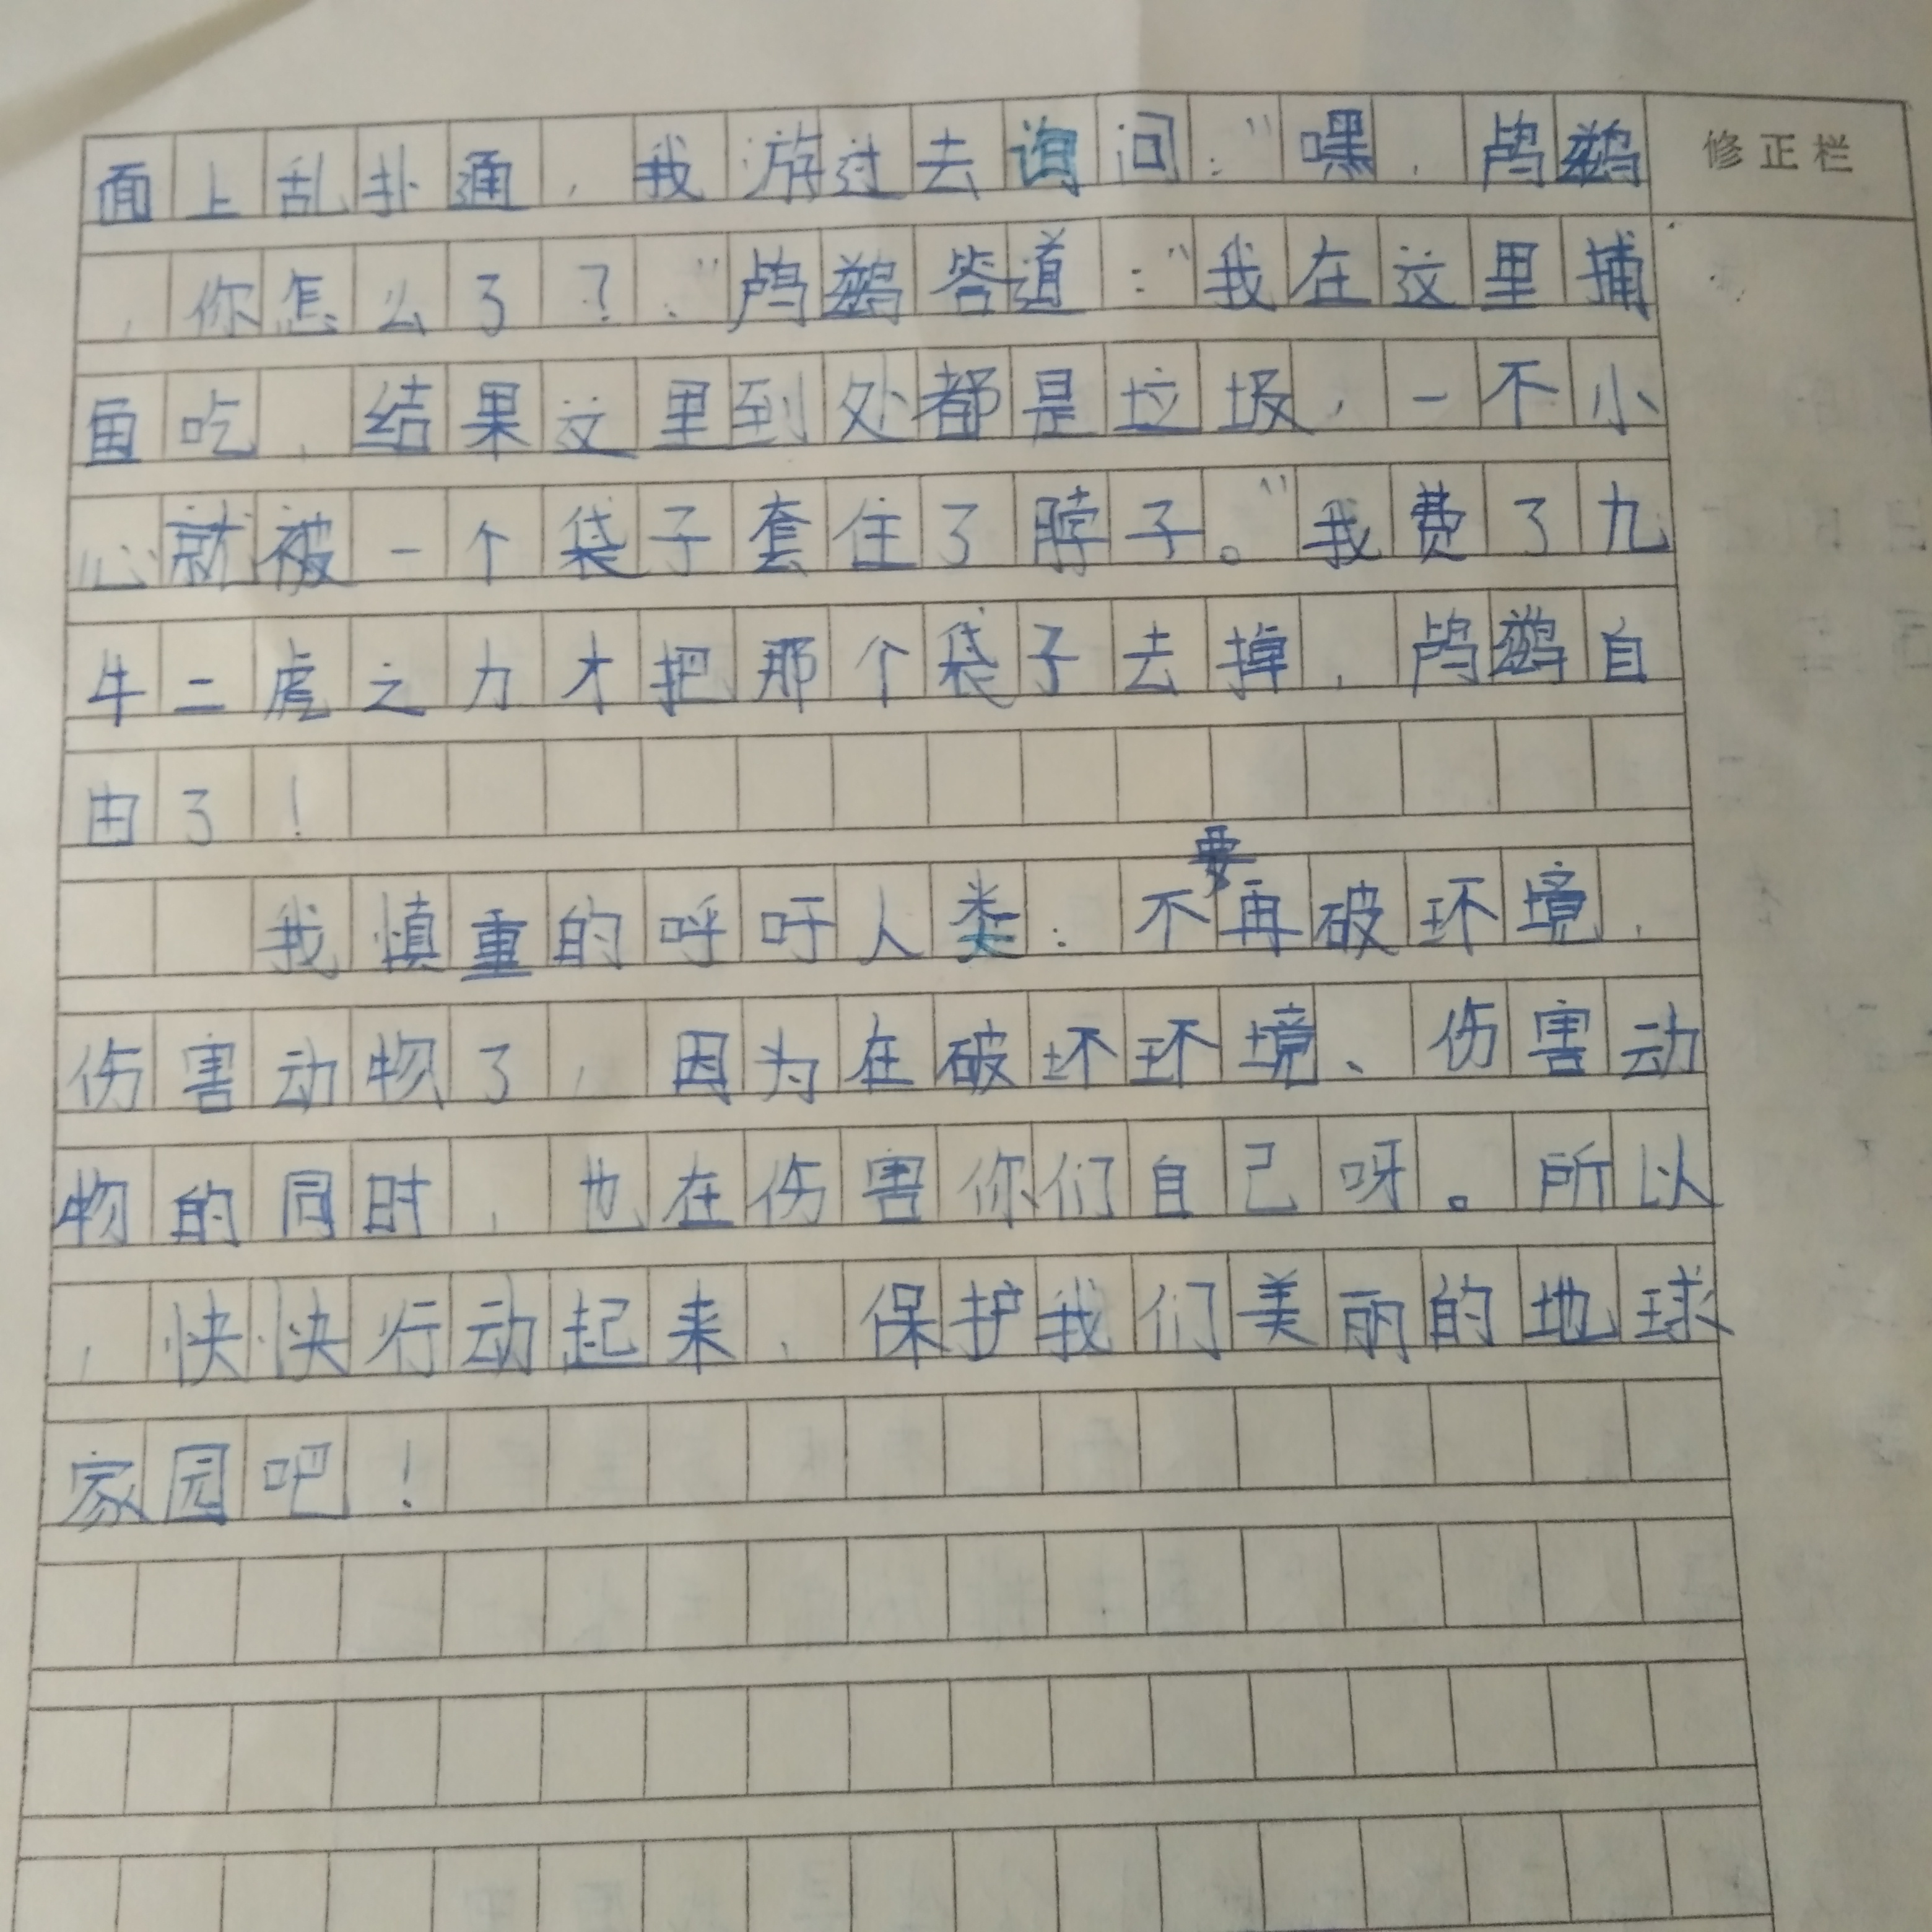 修正栏
面上乱扑通，我游过去询问：“嘿，鸬鹚
，你怎么了？”鸬鹚答道：“我在这里捕
鱼吃，结果这里到处都是垃圾，一不小
心就被一个袋子套住了脖子。”我费了九
牛二虎之力才把那个袋子去掉，鸬鹚自
由了！
我慎重的呼吁人类：不要再破环境，
伤害动物了，因为在破坏环境、伤害动
物的同时，也在伤害你们自己呀。所以
，快快行动起来，保护我们美丽的地球
家园吧！